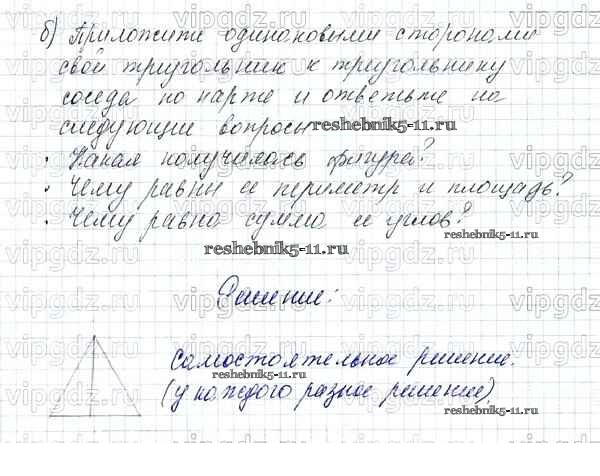 б) Приложите одинаковыми сторонами
свой треугольник к треугольнику
соседа по парте и ответьте на
следующие вопросы reshebnik5-11.ru
· Какая получилась фигура?
· Чему равны ее периметр и площадь?
· Чему равна сумма ее углов?
reshebnik5-11.ru
reshebnik5-11.ru
Решение:
самостоятельное решение.
reshebnik5-11.ru
(у каждого разное решение).
reshebnik5-11.ru
vipgdz